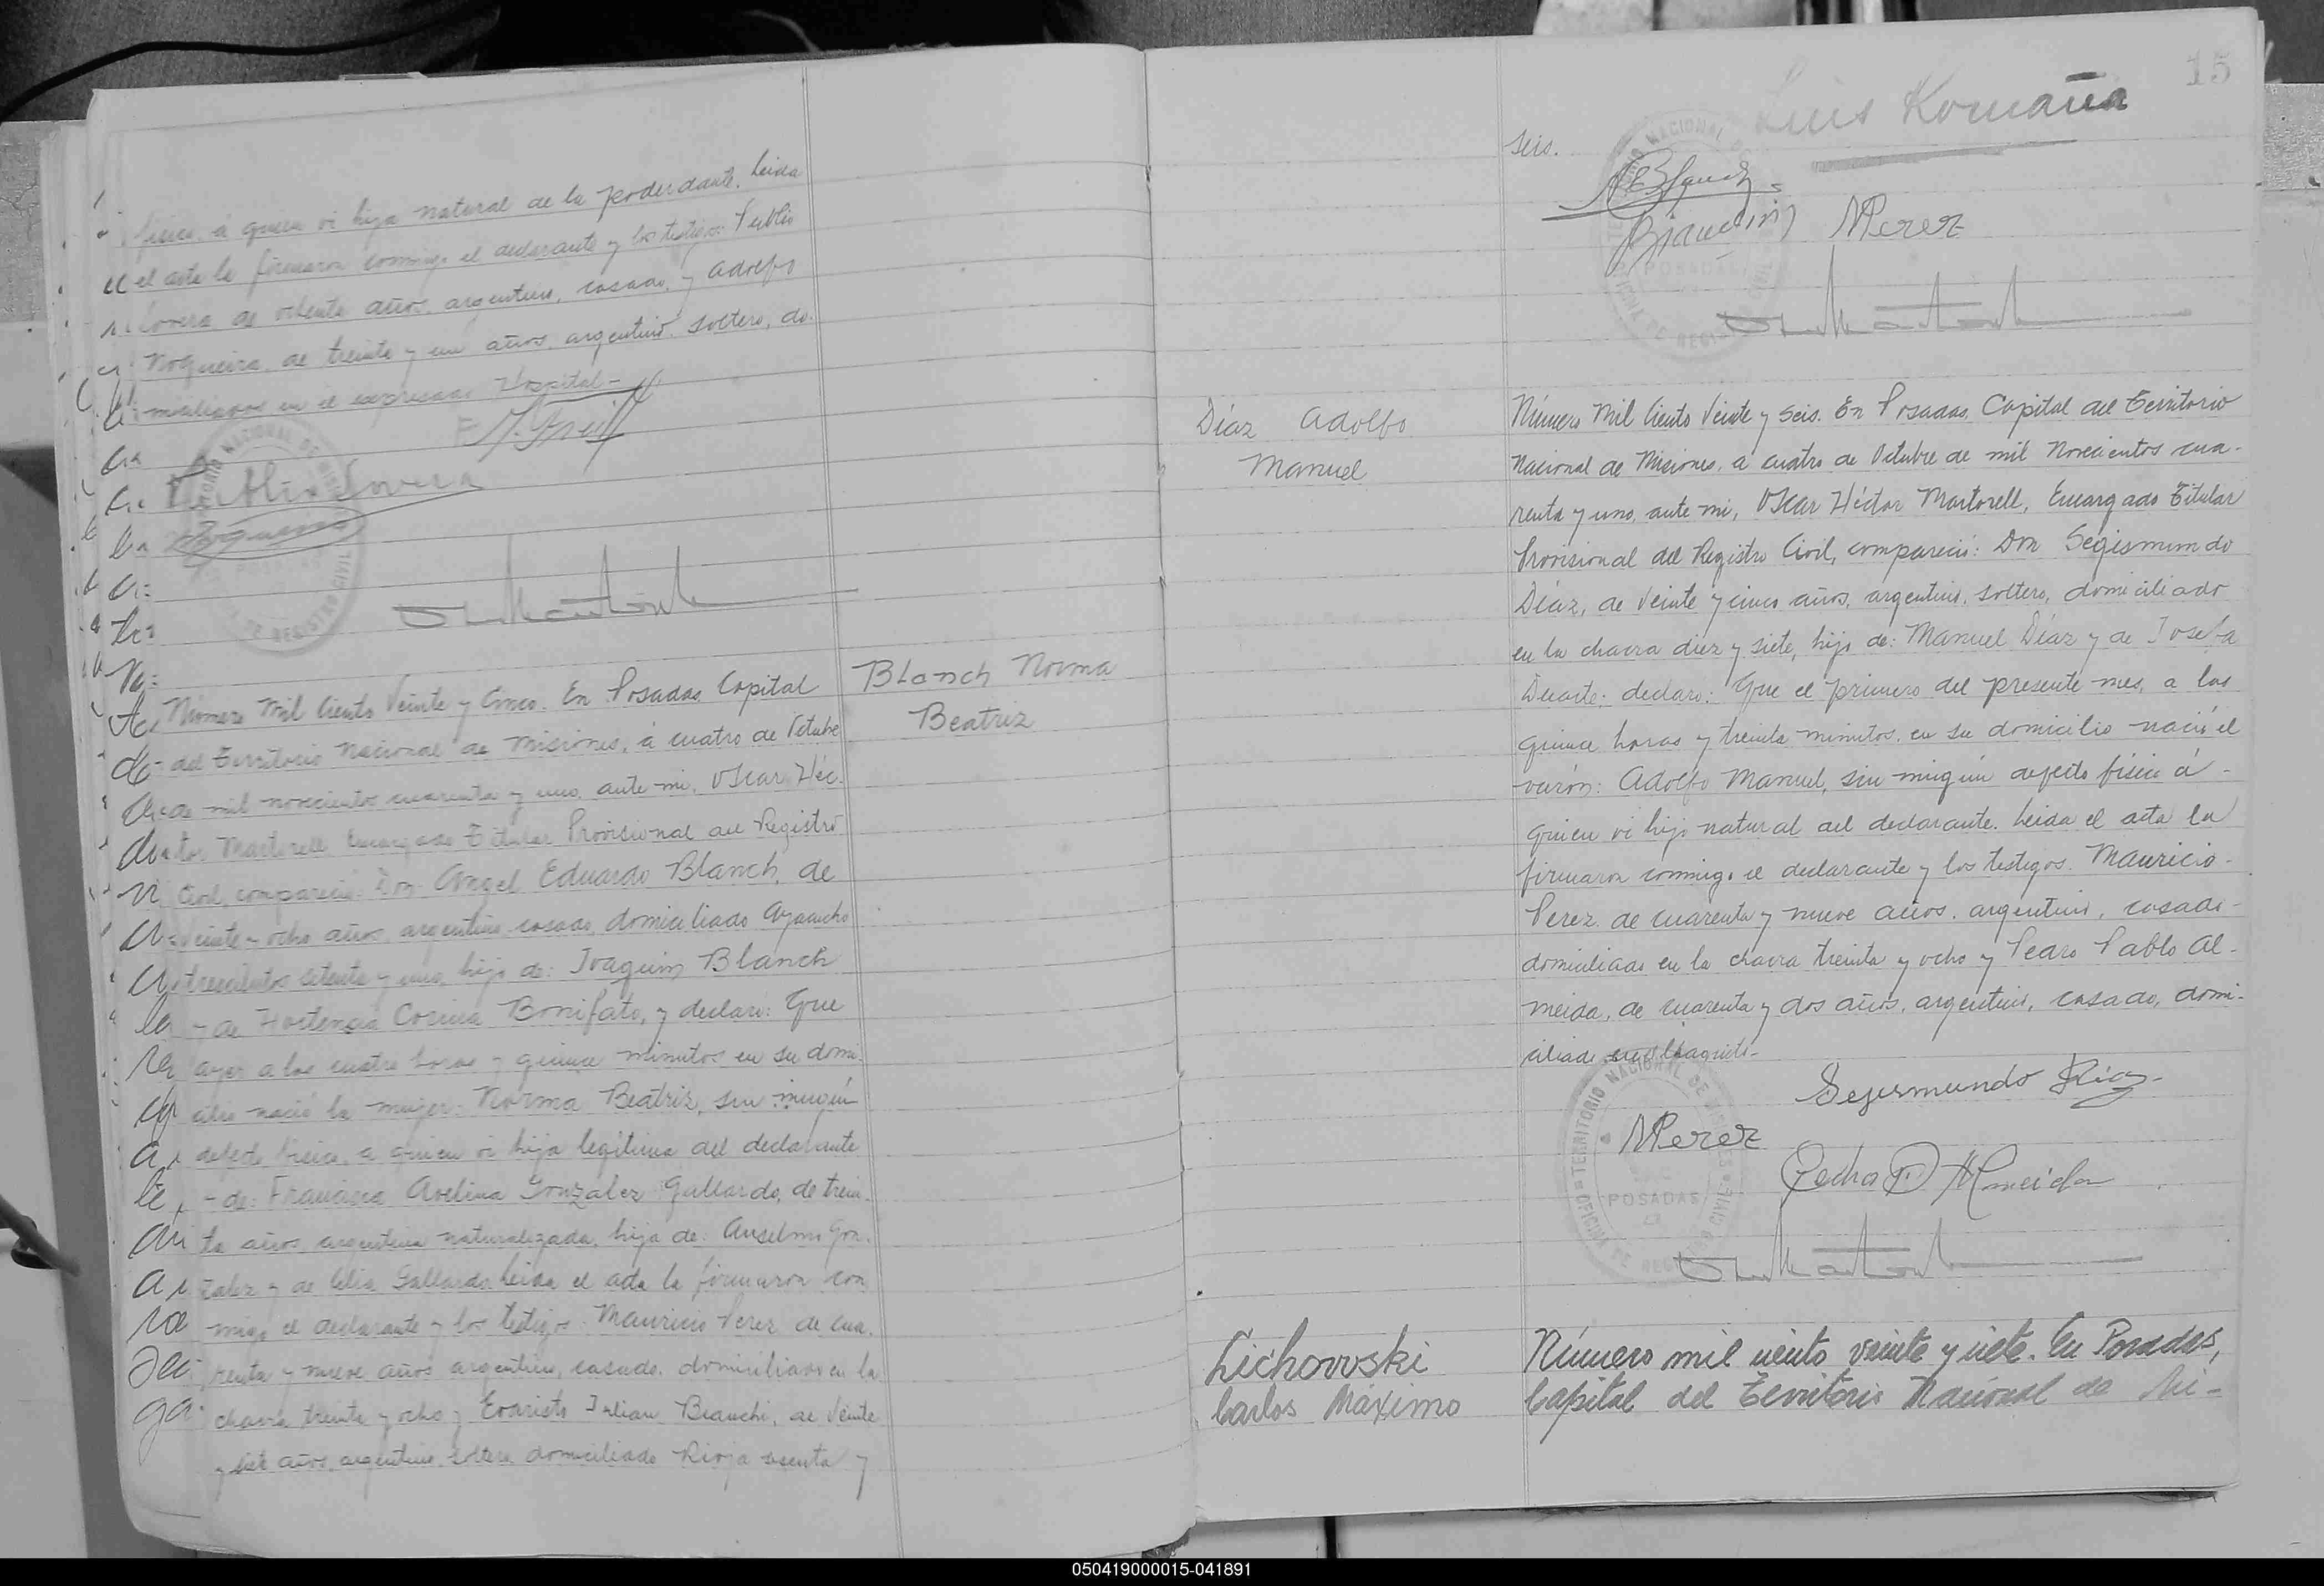 físico, á quien vi hija natural de la poderdante. Leida
el acta la firmaron conmigo el declarante y los testigos: Publio
Lovera de ochenta años, argentino, casado, y Adolfo
Nogueira, de treinta y un años, argentino, soltero, do-
miciliados en el expresado Hospital-
Publio Lovera
Número Mil Ciento Veinte y Cinco. En Posadas, Capital
del Territorio Nacional de Misiones, á cuatro de Octubre
de mil novecientos cuarenta y uno, ante mi, Oscar Héc-
tor Martorell, Encargado Titular Provisional del Registro
Civil, compareció: Don Angel Eduardo Blanch, de
veinte y ocho años, argentino, casado, domiciliado Ayacucho
trescientos setenta y uno, hijo de: Joaquin Blanch
y de Hortencia Corina Bonifato, y declaró: Que
ayer a las cuatro horas y quince minutos en su domi-
cilio nació la mujer: Norma Beatriz, sin ningún
defecto físico, a quien vi hija legítima del declarante
y de: Francisca Avelina Gonzalez Gallardo, de trein-
ta años, argentina naturalizada, hija de: Anselmo Gon-
zalez y de Celia Gallardo. Leida el acta la firmaron con-
migo el declarante y los testigos: Mauricio Perez de cua-
renta y nueve años, argentino, casado, domiciliado en la
chacra treinta y ocho y Evaristo Julian Bianchi, de veinte
y siete años, argentino, soltero, domiciliado Rioja sesenta y
Blanch Norma
Beatriz
15
Luis Romaña
seis.
Bianchi MPerez
Díaz Adolfo
Manuel
Número Mil Ciento Veinte y Seis. En Posadas, Capital del Territorio
Nacional de Misiones, a cuatro de Octubre de mil Novecientos cua-
renta y uno, ante mi, Oscar Héctor Martorell, Encargado Titular
Provisional del Registro Civil, compareció: Don Segismundo
Díaz, de veinte y cinco años, argentino, soltero, domiciliado
en la chacra diez y siete, hijo de: Manuel Díaz y de Josefa
Duarte; declaró: Que el primero del presente mes, a las
quince horas y treinta minutos, en su domicilio nació el
varón: Adolfo Manuel, sin ningún defecto físico á -
quien vi hijo natural del declarante. Leida el acta la
firmaron conmigo el declarante y los testigos: Mauricio-
Perez de cuarenta y nueve años, argentino, casado-
domiciliado en la chacra treinta y ocho y Pedro Pablo Al-
meida, de cuarenta y dos años, argentino, casado, domi-
ciliado en
Segismundo Díaz
MPerez
Pedro P Almeida
OFICINA DE REGISTRO CIVIL TERRITORIO NACIONAL DE MISIONES
POSADAS
Lichowski
Carlos Máximo
Número mil ciento veinte y siete. En Posadas,
Capital del Territorio Nacional de Mi-
050419000015-041891